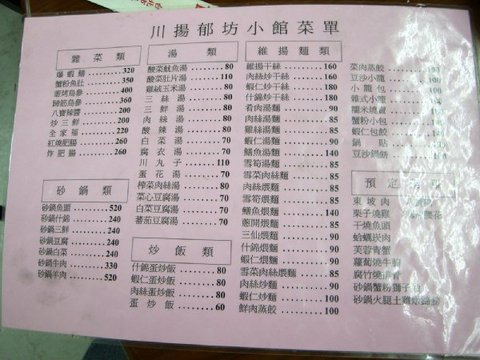 川揚郁坊小館菜單
雜菜類
爆蝦鱔 320
蟹粉魚肚 350
蔥㸆烏參 380
蹄筋烏參 360
八寶辣醬 200
炒三鮮 240
全家福 220
紅燒肥腸 260
炸肥腸 260
砂鍋類
砂鍋魚頭 520
砂鍋什錦 240
砂鍋三鮮 240
砂鍋豆腐 220
砂鍋白菜 220
砂鍋牛肉 330
砂鍋羊肉 520
湯類
酸菜魷魚湯 80
酸菜肚片湯 110
雞絨玉米湯 80
三絲湯 80
三鮮湯 80
肉絲湯 80
酸辣湯 80
白菜湯 70
腐衣湯 70
川丸子 110
蛋花湯 70
榨菜肉絲湯 80
菜心豆腐湯 70
白菜豆腐湯 70
蕃茄豆腐湯 70
炒飯類
什錦蛋炒飯 80
蝦仁蛋炒飯 80
肉絲蛋炒飯 80
蛋炒飯 60
維揚麵類
維揚干絲 160
肉絲炒干絲 160
蝦仁炒干絲 160
什錦炒干絲 160
肴肉湯麵 90
肉絲湯麵 85
雞絲湯麵 85
蝦仁湯麵 90
鱔魚湯麵 140
雪筍湯麵 85
雪菜肉絲湯麵 85
肉絲煨麵 85
雪筍煨麵 85
鱔魚煨麵 140
蔥開煨麵 90
三仙煨麵 90
什錦煨麵 90
蝦仁煨麵 90
雪菜肉絲煨麵 85
肉絲炒麵 90
什錦炒麵 90
蝦仁炒麵 100
鮮肉蒸餃 100
菜肉蒸餃
豆沙小籠
小籠包
雜式小籠
糯米燒賣
蟹粉小包
蝦仁包餃 140
鍋貼
豆沙鍋餅
預定
東坡肉
栗子燒雞
干燒魚頭
蛤蠣崁肉
芙蓉青蟹
蘿蔔燒牛腩
腐竹燒
砂鍋蟹粉獅子
砂鍋火腿土雞